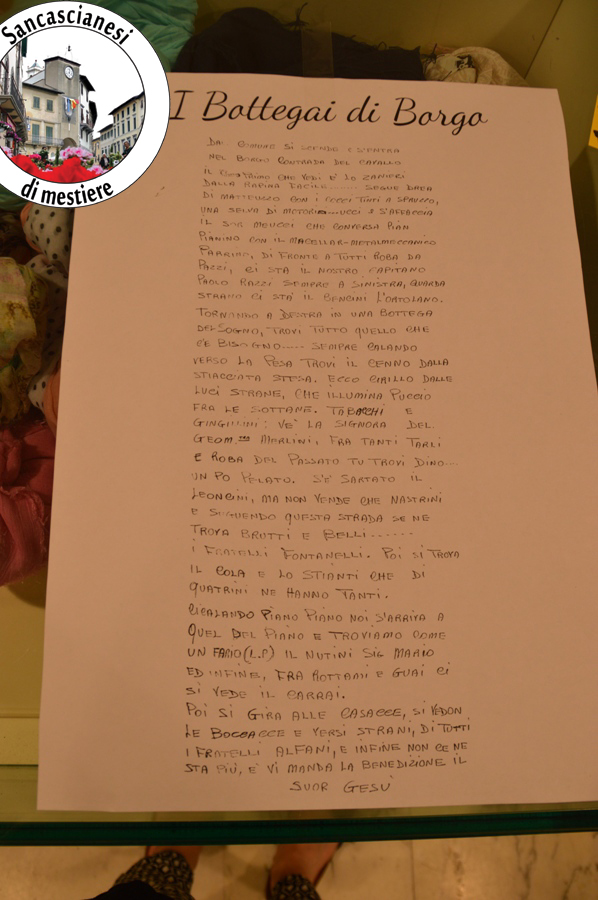 Sancascianesi
di mestiere
I Bottegai di Borgo
DAL SI SCENDE E S'ENTRA
NEL BORGO CONTRADA DEL CAVALLO
IL CHE VEDI E' LO ZANIERI
DALLA RAPINA FACILE....... SEGUE
DI MATTEUZZO CON I COCCI TUTTI A SPRAZZO,
UNA SELVA DI S'AFFACCIA
IL SOR MEUCCI CHE CONVERSA PIAN
PIANINO CON IL MACELLAR-METALMECCANICO
PARRINI, DI FRONTE A TUTTI ROBA DA
PAZZI, CI STA IL NOSTRO CAPITANO
PAOLO RAZZI SEMPRE A SINISTRA, GUARDA
STRANO CI STA' IL CENCINI L'ORTOLANO.
TORNANDO A DESTRA IN UNA BOTTEGA
DEL SOGNO, TROVI TUTTO QUELLO CHE
C'E BISOGNO..... SEMPRE CALANDO
VERSO LA PESA TROVI IL CENNO DALLA
STIACCIATA STESA. ECCO CIRILLO DALLE
LUCI STRANE, CHE ILLUMINA PUCCIO
FRA LE SOTTANE. TABACCHI E
GINGILLINI: VE' LA SIGNORA DEL
GEOM. MERLINI, FRA TANTI TARLI
E ROBA DEL PASSATO TU TROVI DINO...
UN PO PELATO. S'E' SARTATO IL
LEONCINI, MA NON VENDE CHE NASTRINI
E SEGUENDO QUESTA STRADA SE NE
TROVA BRUTTI E BELLI......
I FRATELLI FONTANELLI. POI SI TROVA
IL COLA E LO STIANTI CHE DI
QUATRINI NE HANNO TANTI.
CICALANDO PIANO PIANO NOI S'ARRIVA A
QUEL DEL PIANO E TROVIAMO COME
UN FARIO(L.P) IL NUTINI SIG MARIO
ED INFINE, FRA ROTTAMI E GUAI CI
SI VEDE IL CARRAI.
POI SI GIRA ALLE CASACCE, SI VEDON
LE BOCCACCE E VERSI STRANI, DI TUTTI
I FRATELLI ALFANI, E INFINE NON CE NE
STA PIÙ, E' VI MANDA LA BENEDIZIONE IL
SUOR GESU'